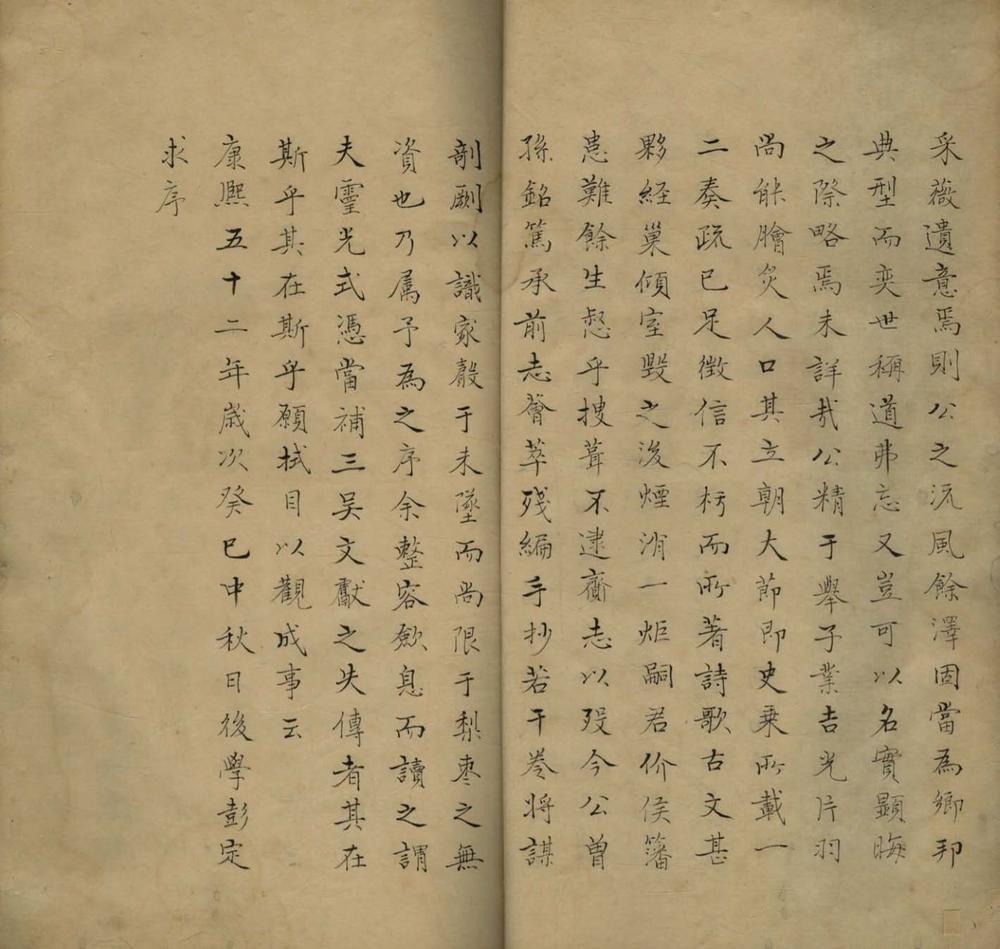 采薇遺意焉則公之流風餘澤固當為鄉邦
典型而奕世稱道弗忘又豈可以名實顯晦
之際略焉未詳哉公精于舉子業吉光片羽
尚能膾炙人口其立朝大節即史乘所載一
二奏疏已足徵信不朽而所著詩歌古文甚
夥経巢傾室毀之後煙消一炬嗣君价侯籓
患難餘生惄乎搜葺不逮齎志以歿今公曾
孫銘篤承前志薈萃残編手抄若干卷將謀
剞劂以識家殽于未墜而尚限于梨枣之無
資也乃属予為之序余整容歛息而讀之謂
夫靈光式憑當補三吴文獻之失傳者其在
斯乎其在斯乎願拭目以觀成事云
康熙五十二年歳次癸巳中秋日後學彭定
求序